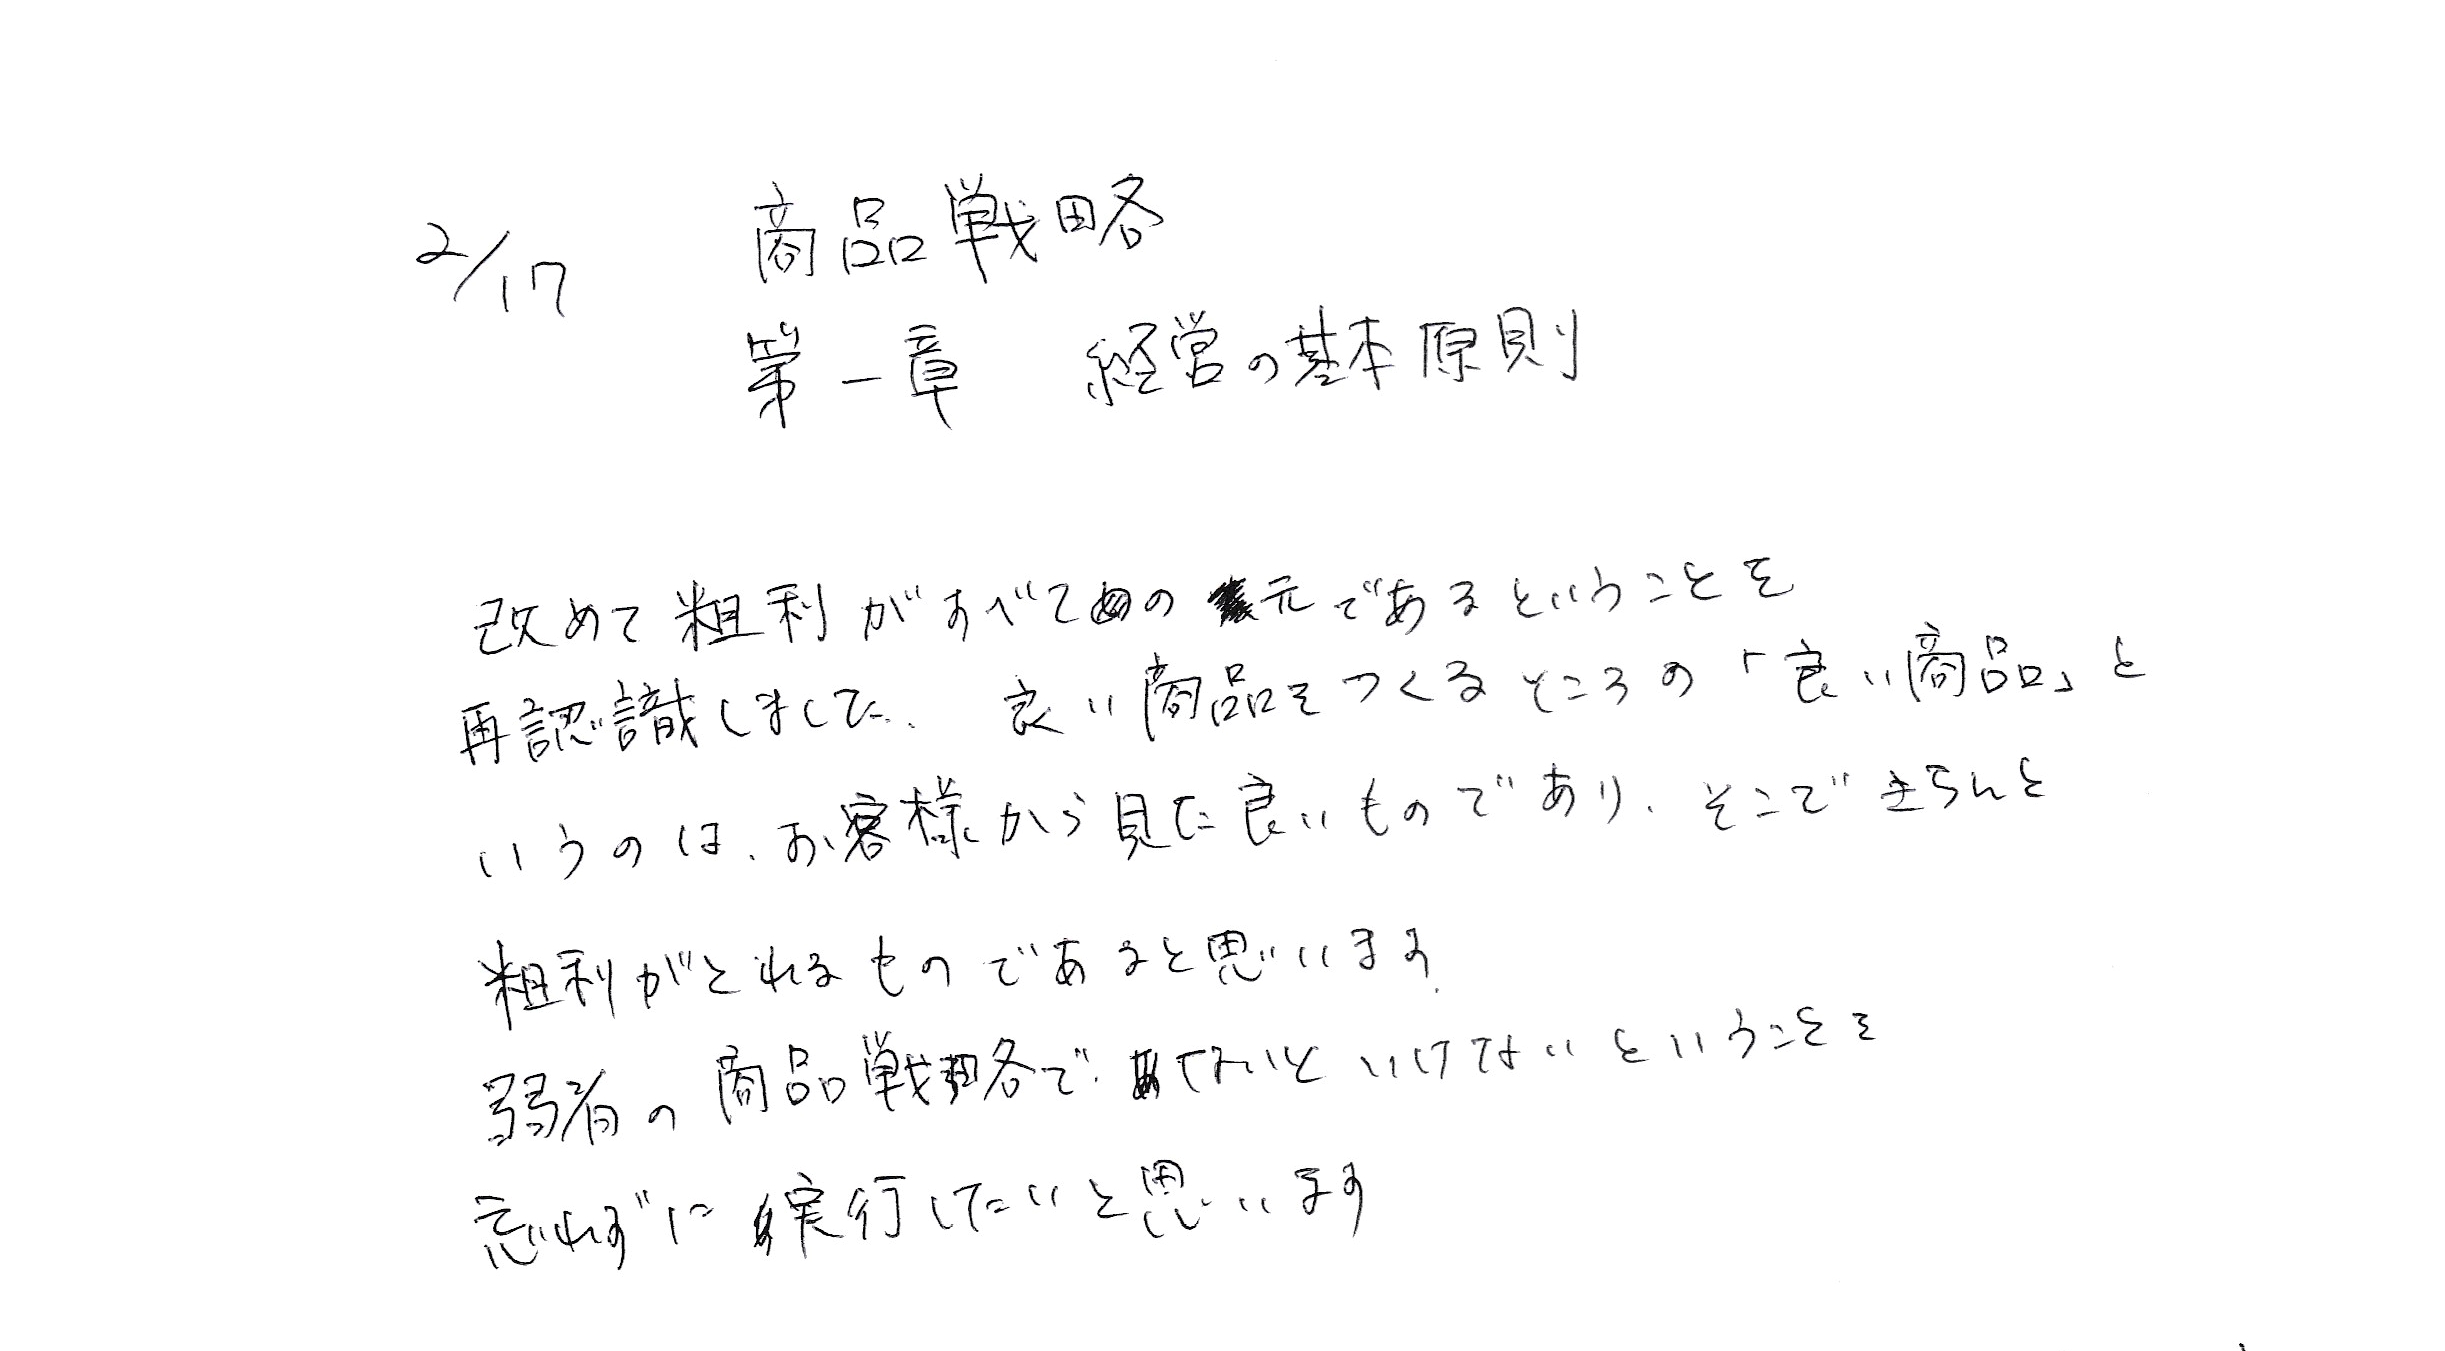 2/17
商品戦略
第一章 経営の基本原則
改めて粗利がすべての元であるということを
再認識しました。良い商品をつくるところの「良い商品」と
いうのは、お客様から見た良いものであり、そこできちんと
粗利がとれるものであると思います。
弱者の商品戦略でないといけないということを
忘れずに実行したいと思います